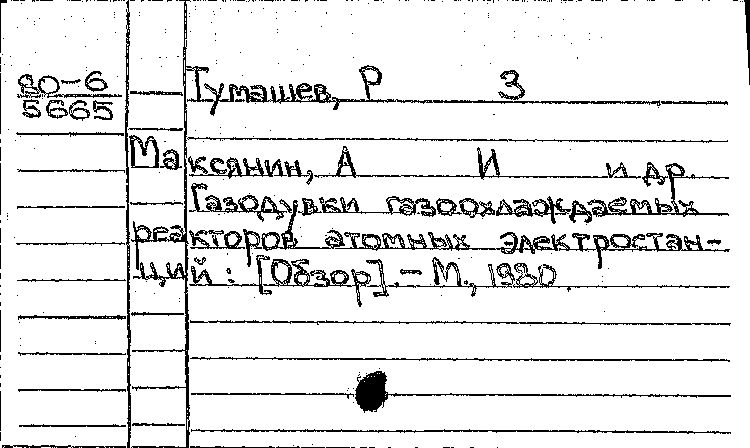 80-6
5665
Тумашев, Р З
Максянин, А И и др.
Газодувки газоохлаждаемых
реакторов атомных электростан-
ций: [Обзор].- М., 1980.